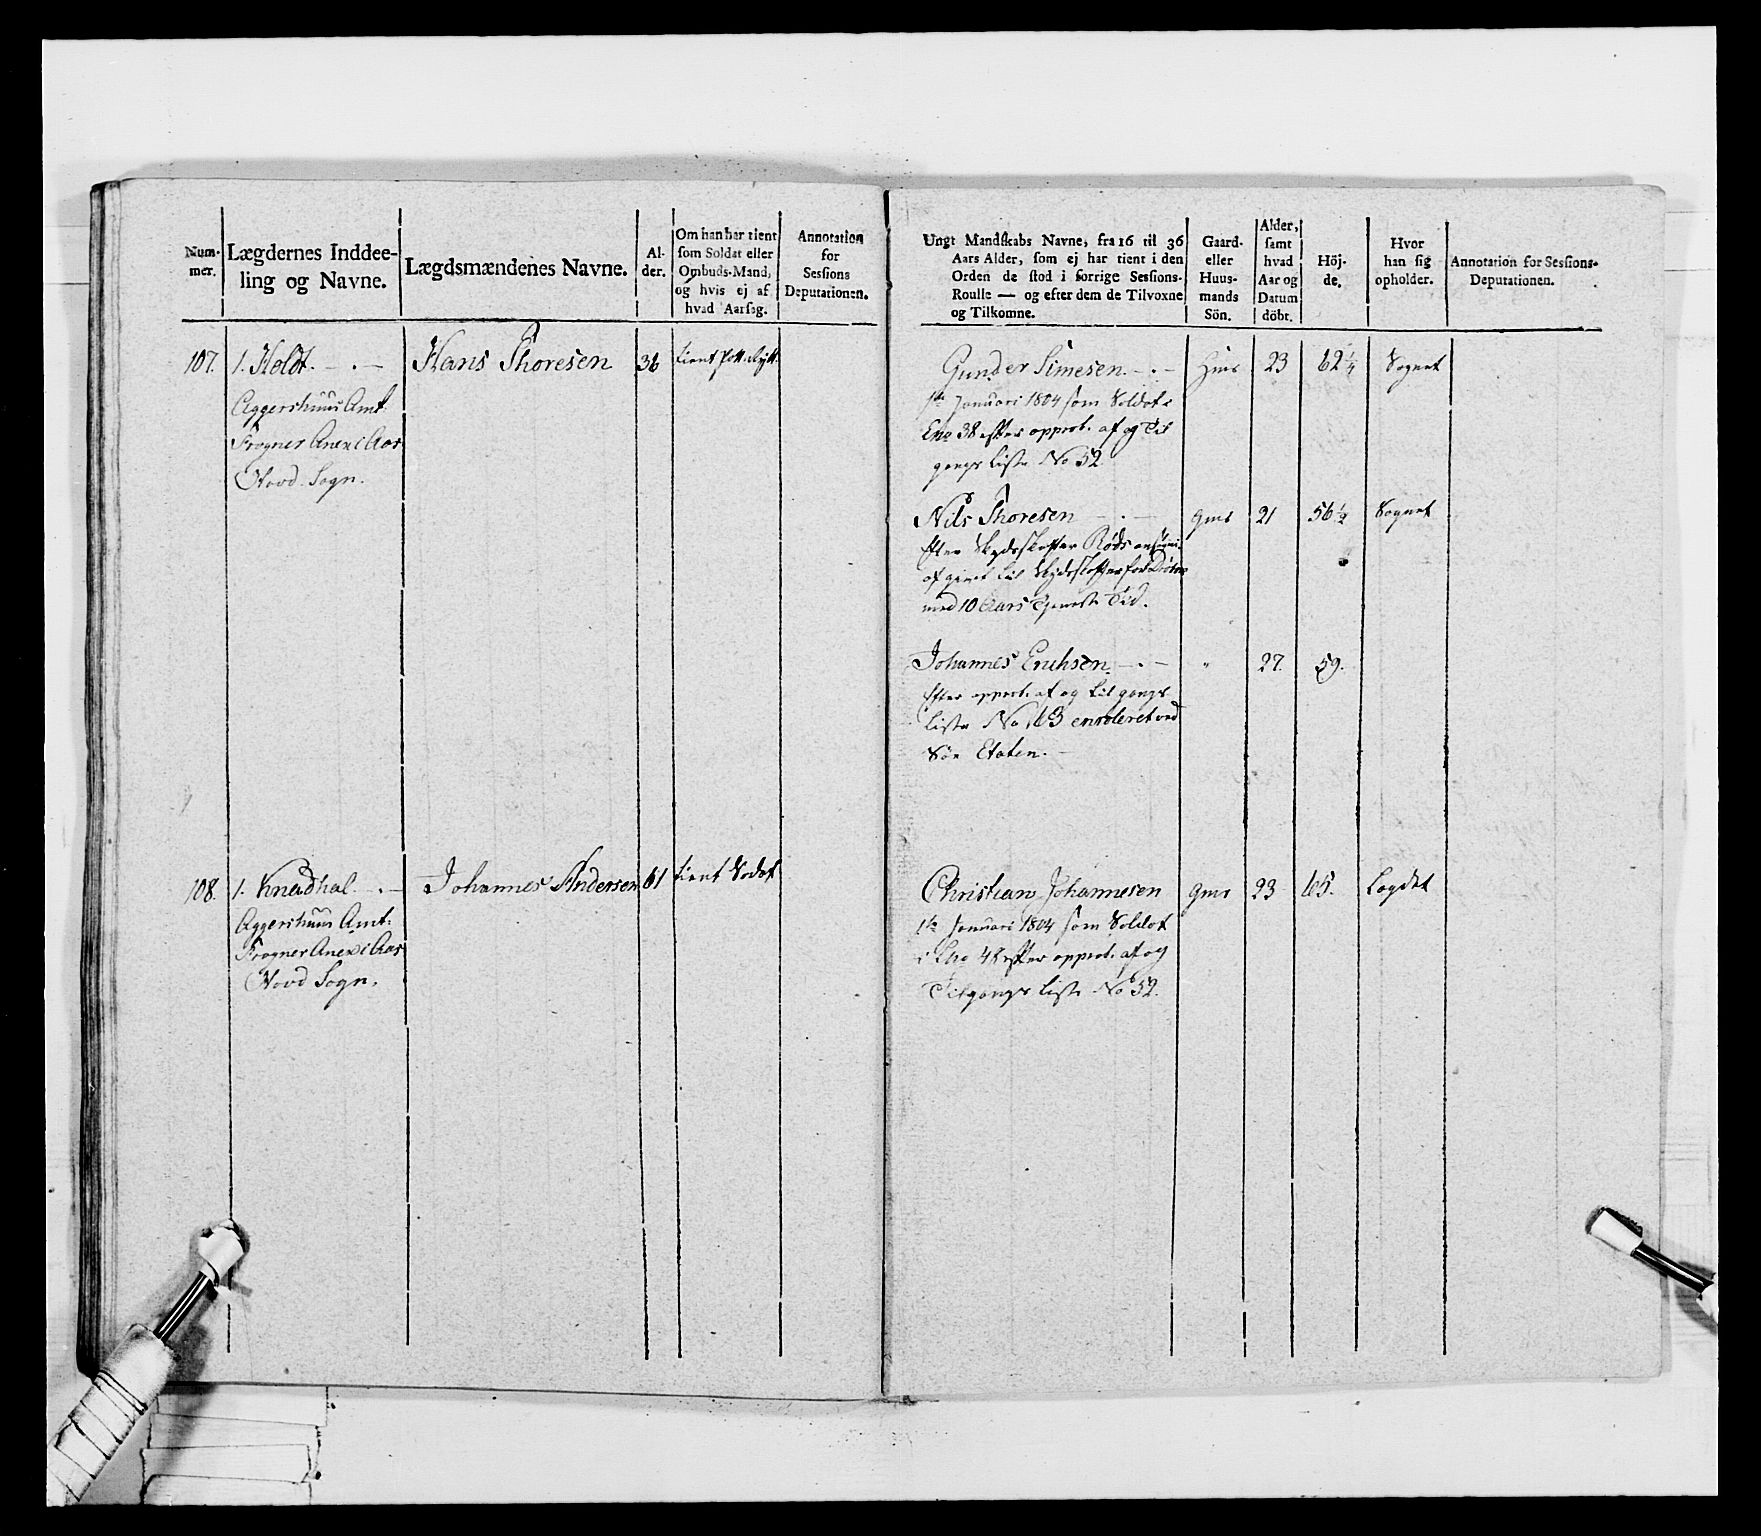 Num-
mer.
Lægdernes Inddee-
ling og Navne.
Lægdsmændenes Navne.
Al-
der.
Om han har tient
som Soldat eller
Ombuds-Mand,
og hvis ej af
hvad Aarsag.
Annotation
for
Sessions
Deputationen.
107. 1. Holdt. Hans Thoresen 36 tient
Aggershuus Amt.
Frogner Anex i Aas
Hovd. Sogn.
108. 1. Knadhal. Johannes Andersen 61 tient Sodat
Aggershuus Amt.
Frogner Anex i Aas
Hovd Sogn.
Ungt Mandskabs Navne, fra 16 til 36
Aars Alder, som ej har tient i den
Orden de stod i forrige Sessions-
Roulle — og efter dem de Tilvoxne
og Tilkomne.
Gaard-
eller
Huus-
mands
Sön.
Alder,
samt
hvad
Aar og
Datum
döbt.
Höj-
de.
Hvor
han sig
opholder.
Annotation for Sessions-
Deputationen.
Gunder Simesen. Hms 23 62 1/4 Sognet
1te Januari 1804 som Soldat i
38 efter approb. af og Til
gangs Liste No 52
Nils Thoresen Gms 21 56 1/2 Sognet
Efter Skydsskaffer Røds
afgivet til Skydsskaffer for
med 10 Aars Tjeneste Tid.
Johannes Erichsen " 27. 59.
Efter approb. af og til gangs
Liste No 163 enrolleret ved
Søe Etaten.
Christian Johannesen Gms 23 65. Lægdet
1te Januari 1804 som Soldat
i 48 efter approb. af og
Tilgangs Liste No 52.